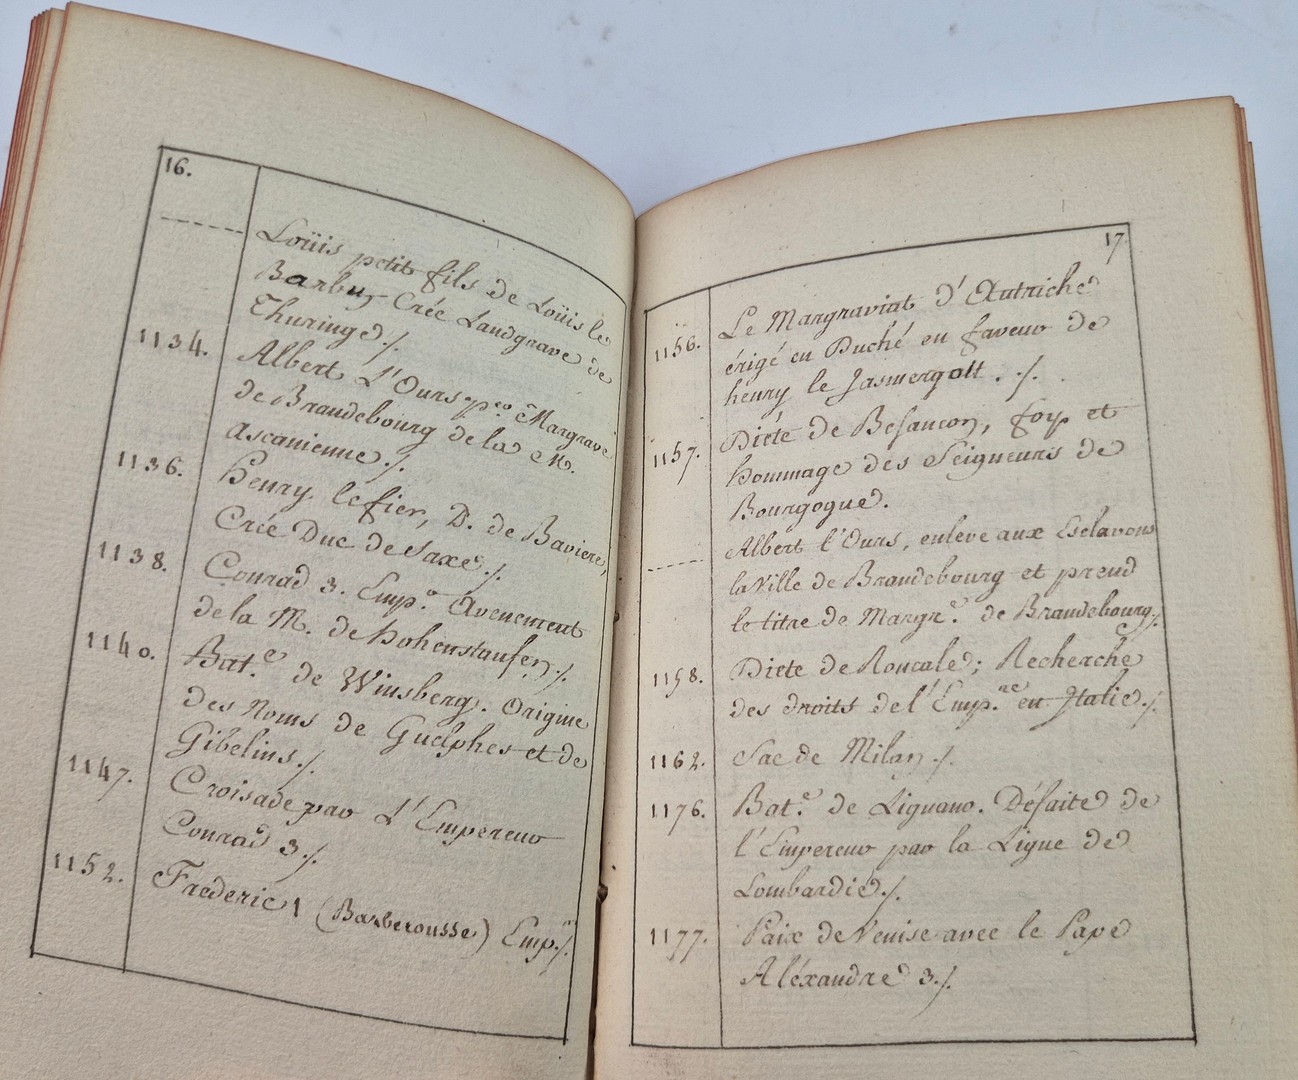 16.
- - - - - Loüis petit fils de Loüis le
Barbu, Crée Landgrave de
Thuringe ./.
1134. Albert L'Ours p.er Margrave
de Brandebourg de la M.
ascanienne ./.
1136. henry le fier, D. de Baviere,
Crée Duc de Saxe ./.
1138. Conrad 3. Emp.r Avenement
de la M. de hohenstaufen ./.
1140. Bat.e de Winsberg. Origine
des Noms de Guelphes et de
Gibelins ./.
1147. Croisade par L'Empereur
Conrad 3 ./.
1152. Frederic 1 (Barberousse) Emp.r ./.
17
1156. Le Margraviat d'Autriche
érigé en Duché en faveur de
henry le Jasmergott . ./.
1157. Diéte de Besancon, foy et
hommage des Seigneurs de
Bourgogne.
- - - - - Albert l'Ours, enleve aux Esclavons
la Ville de Brandebourg et prend
le titre de Margr.e de Brandebourg ./.
1158. Diete de Roncale; Recherche
des droits de l'Emp.re en Italie ./.
1162. Sac de Milan ./.
1176. Bat.e de Lignano. Défaite de
l'Empereur par la Ligue de
Lombardie ./.
1177. Paix de Venise avec le Pape
Aléxandre 3 ./.